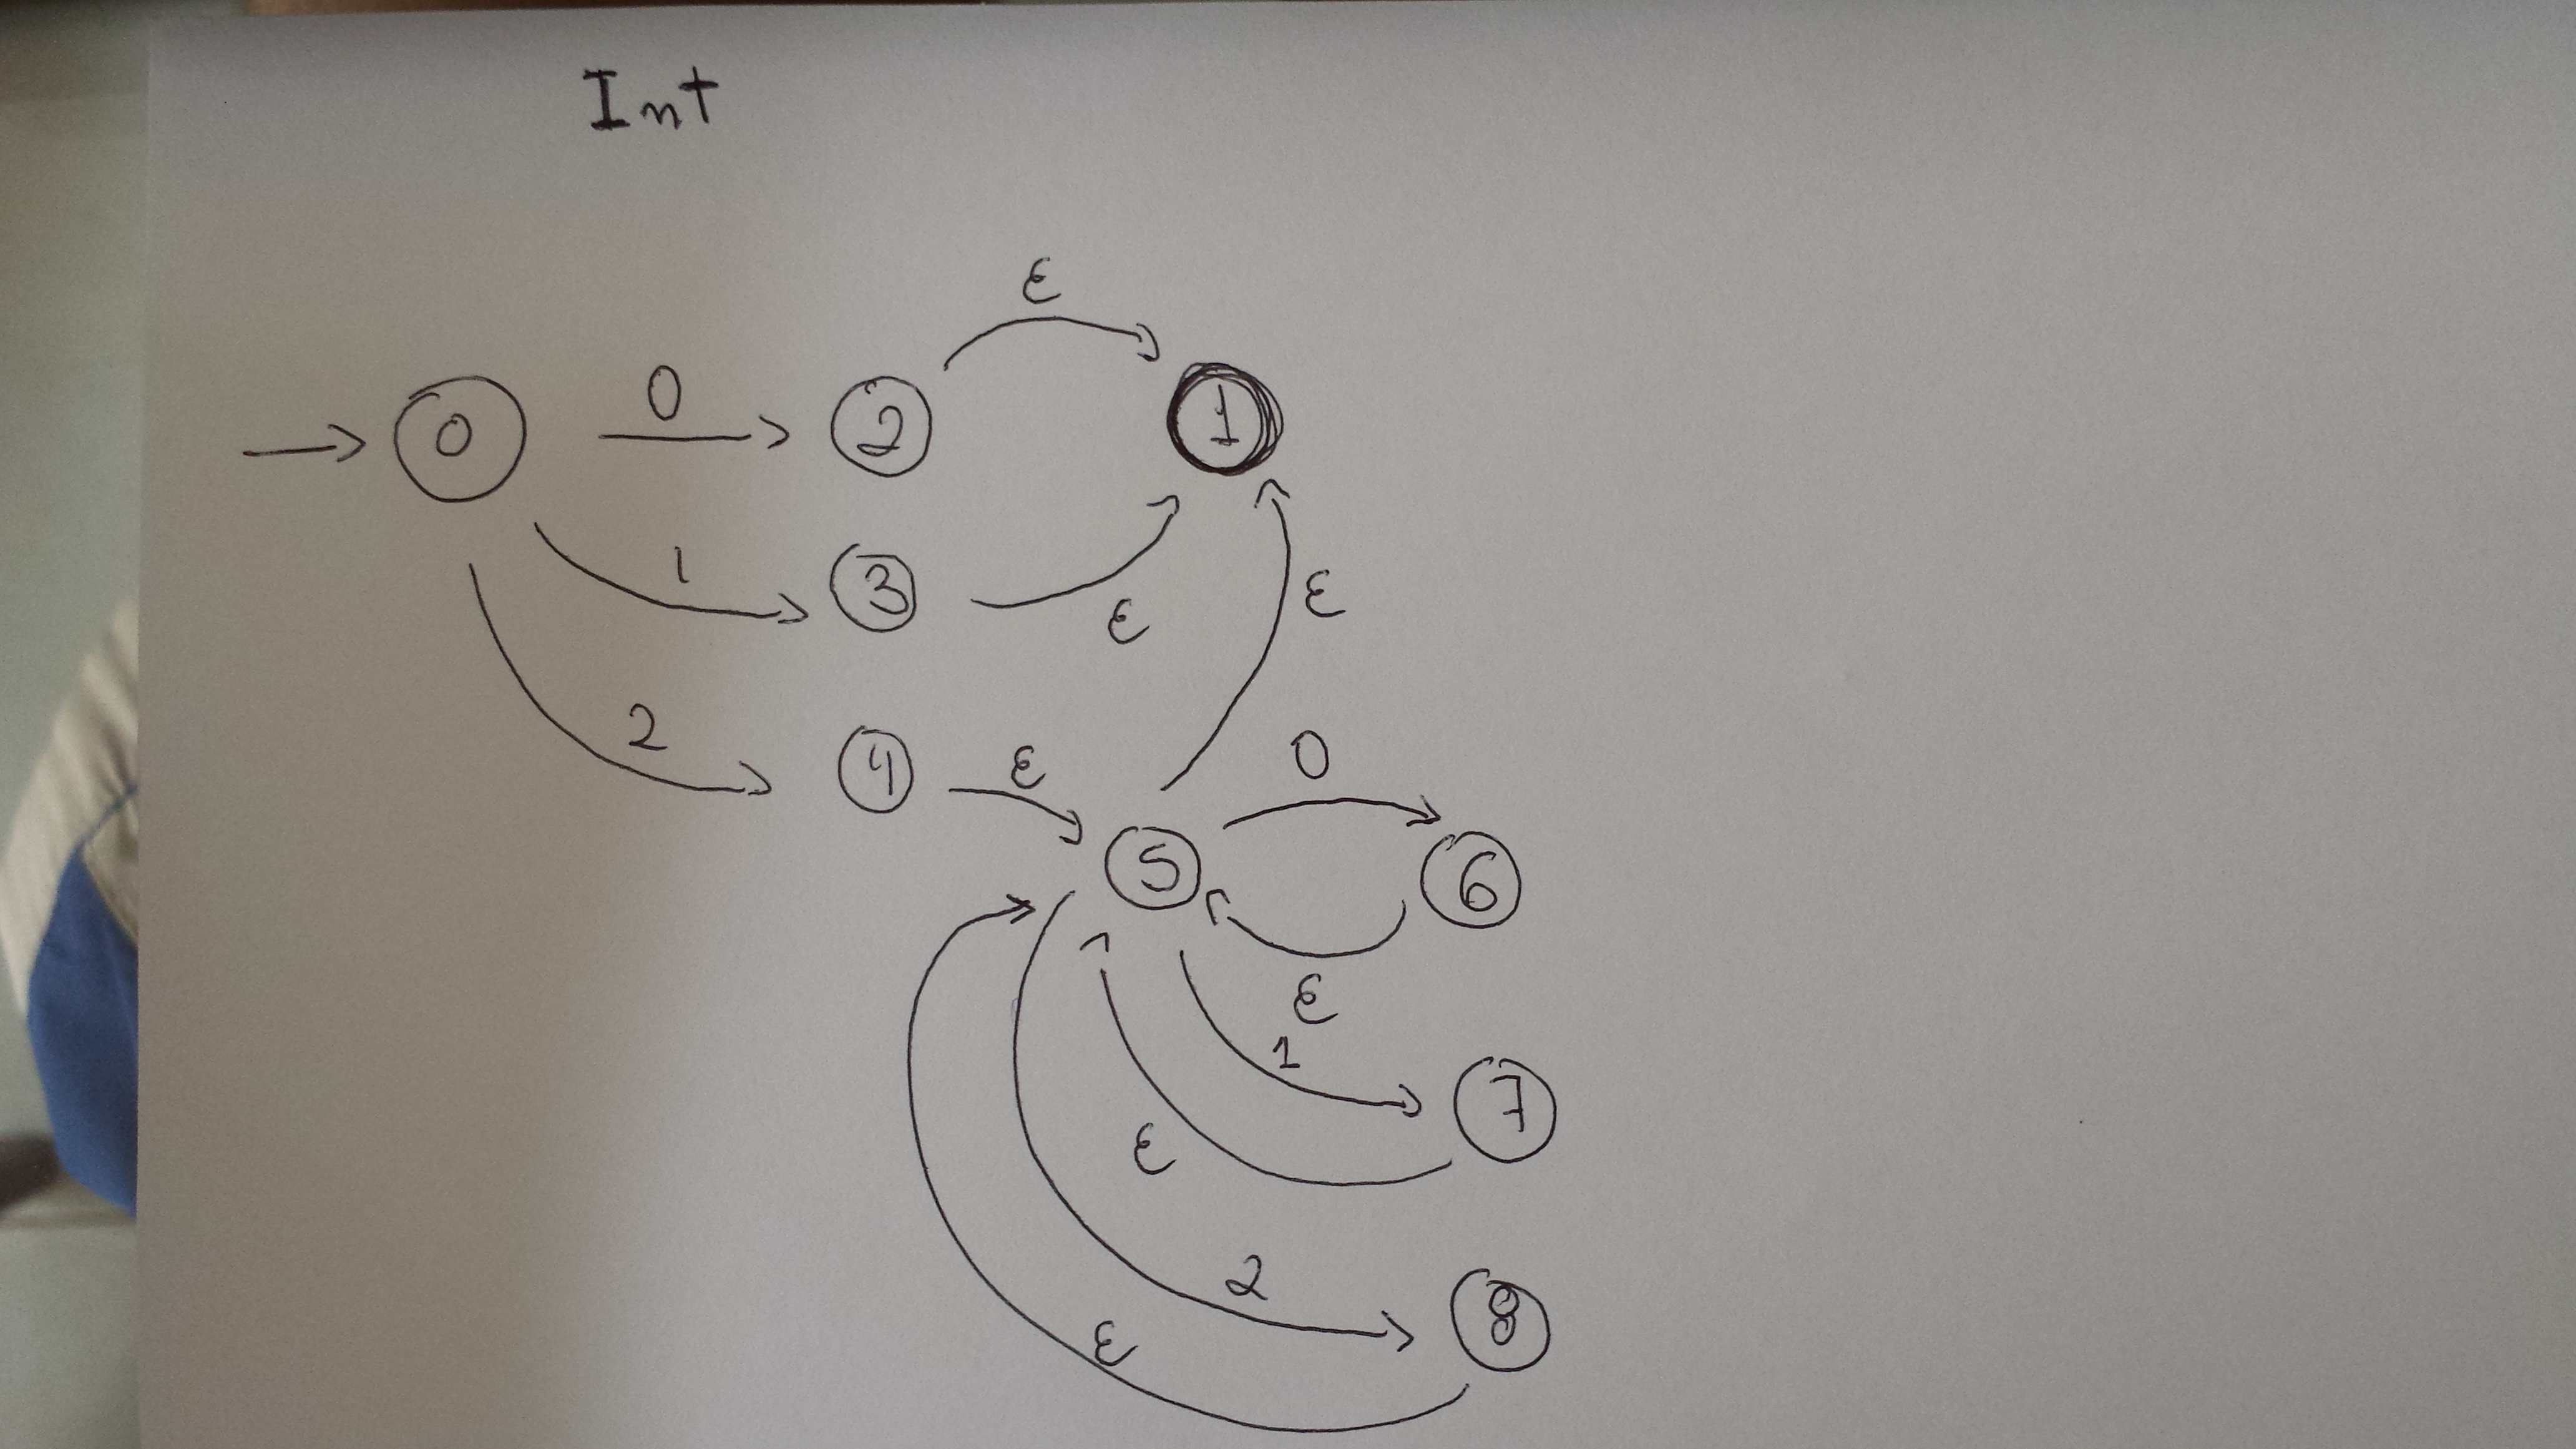 Int
ε
0 0 2 1
1 3 ε ε
2 4 ε 0
5 6
ε
1
7
ε
2 8
ε